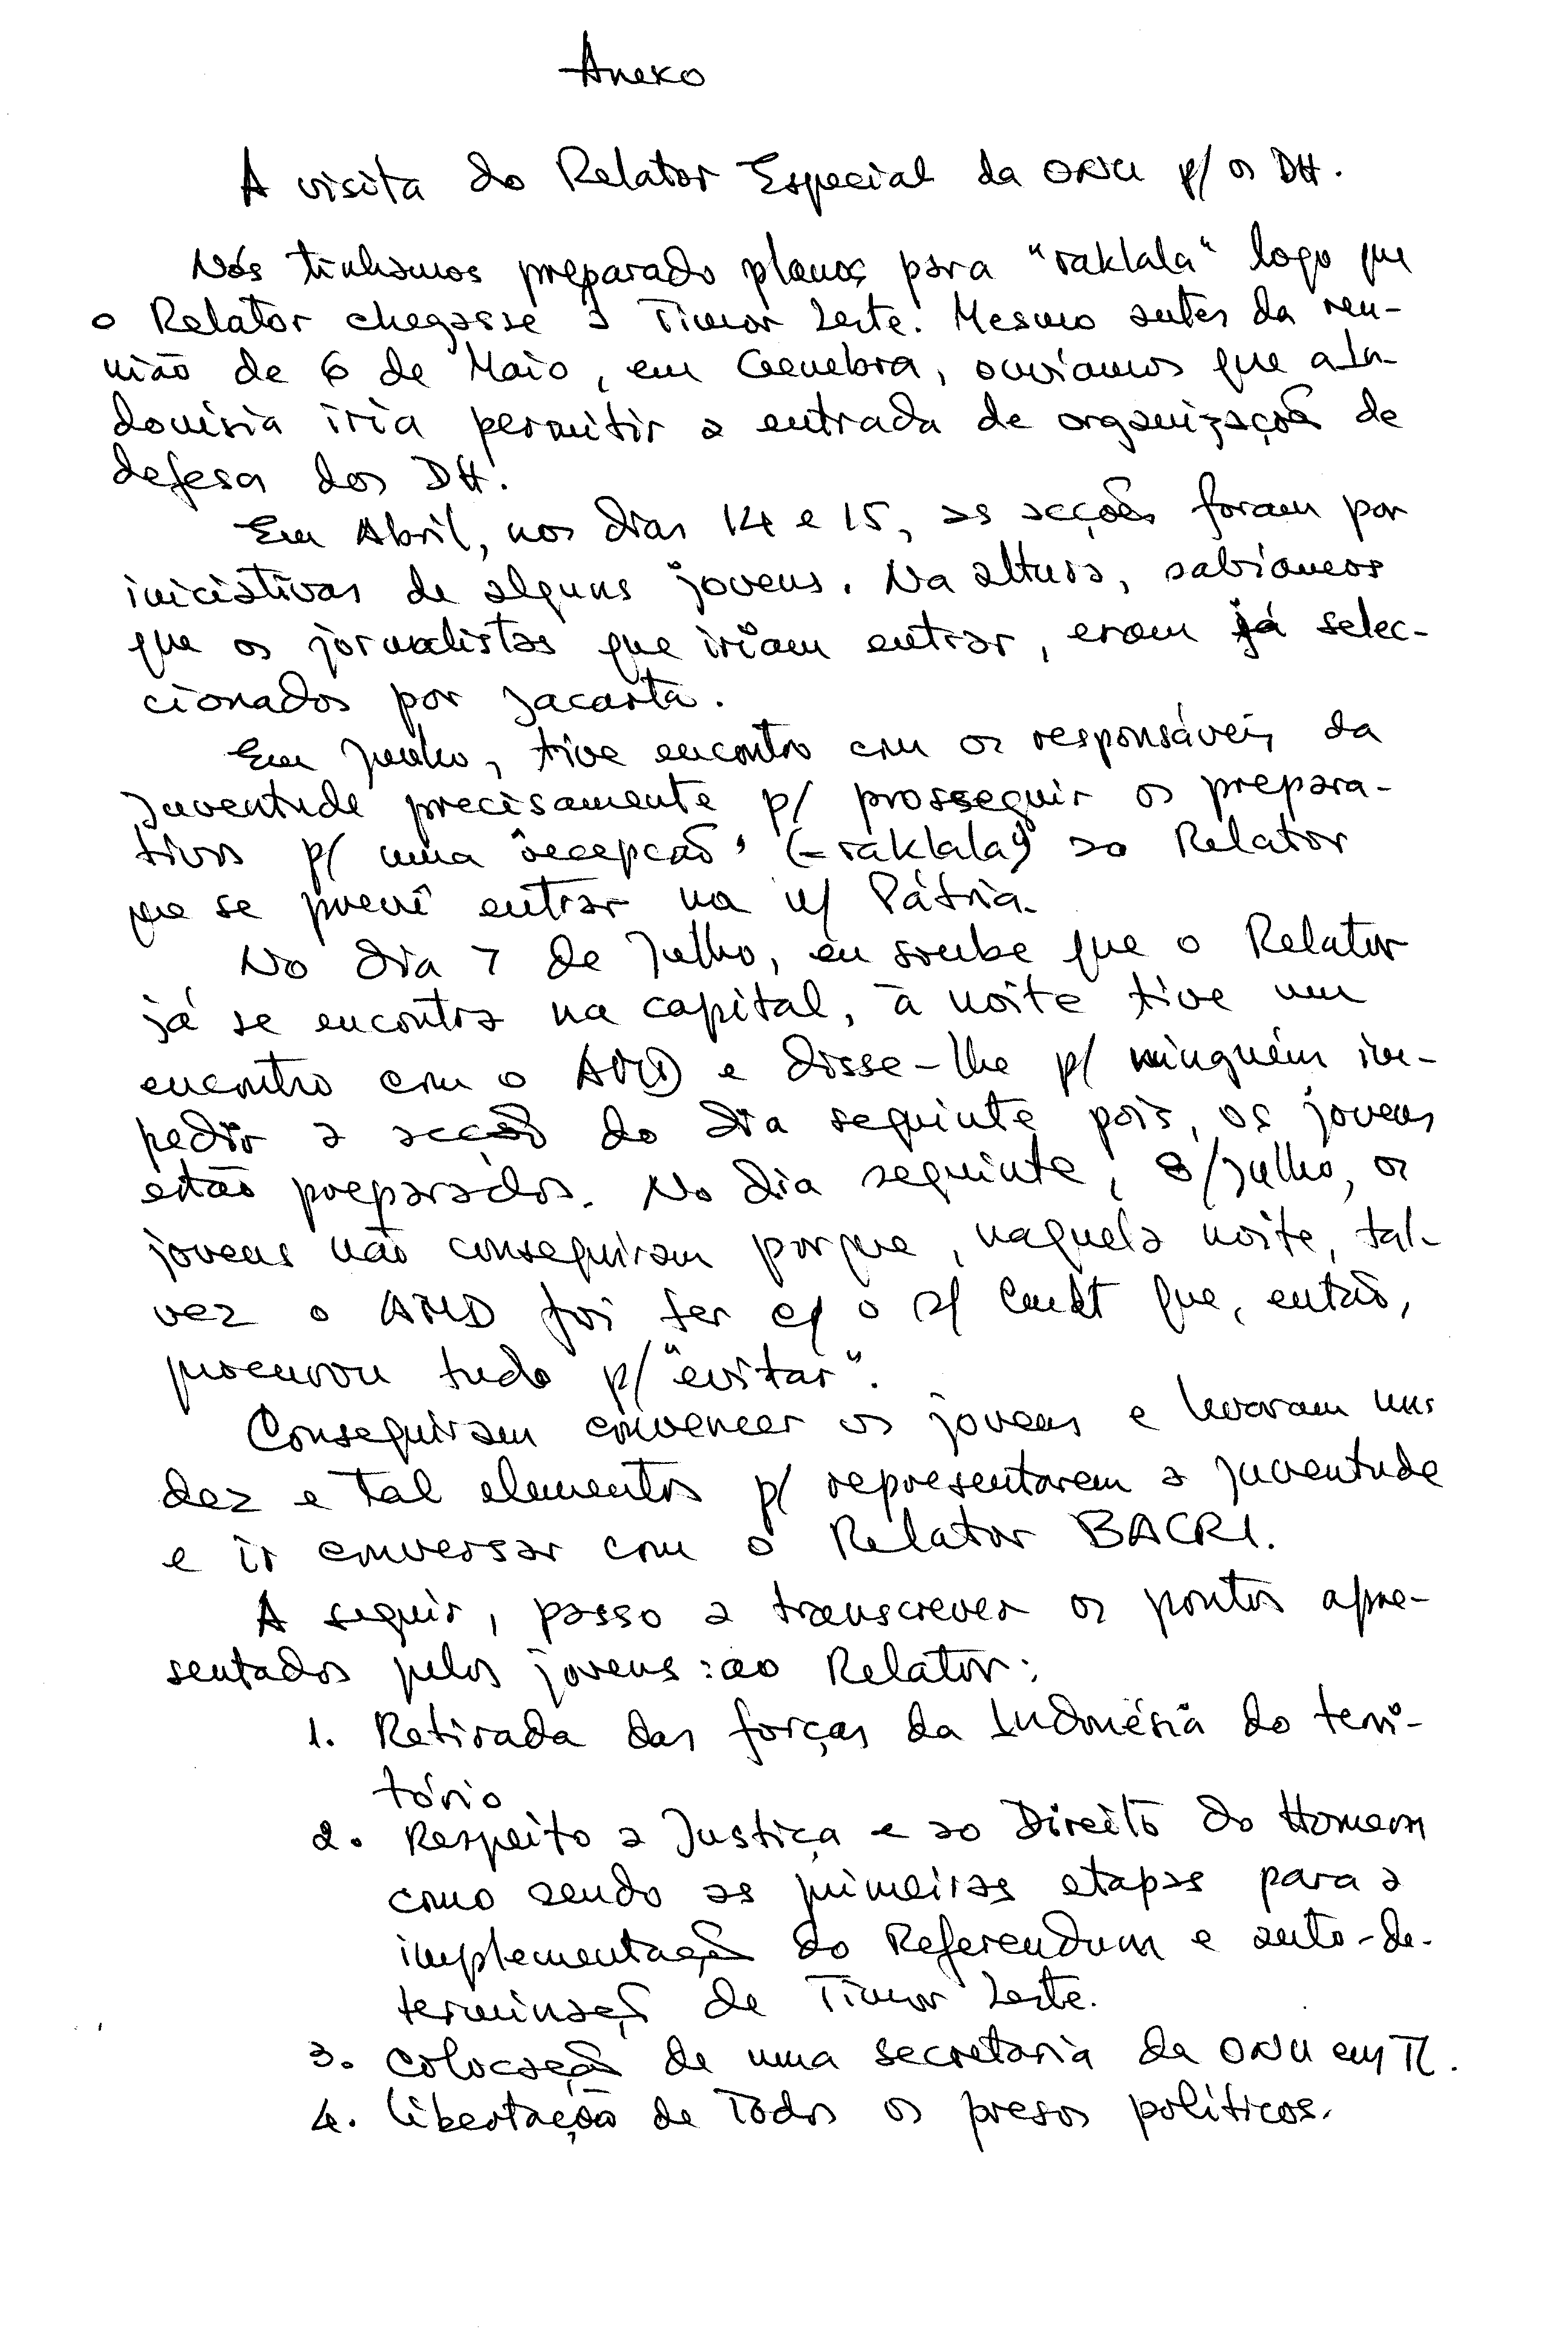 Anexo
A visita do Relator Especial da ONU p/ os DH.
Nós tinhamos preparado planos para "raklala" logo que
o Relator chegasse a Timor Leste. Mesmo antes da reu-
nião de 6 de Maio, em Genebra, ouviamos que a In-
donésia iria permitir a entrada de organização de
defesa dos DH.
Em Abril, nos dias 14 e 15, as acções foram por
iniciativas de alguns jovens. Na altura, sabíamos
que os jornalistas que iriam entrar, eram já selec-
cionados por Jacarta.
Em Junho, tive encontro com os responsáveis da
Juventude precisamente p/ prosseguir os prepara-
tivos p/ uma "recepção" (=raklala) ao Relator
que se prevê entrar na n/ Pátria.
No dia 7 de Julho, eu soube que o Relator
já se encontra na capital, à noite tive um
encontro com o AMD e disse-lhe p/ ninguém im-
pedir a acção do dia seguinte pois, os jovens
estão preparados. No dia seguinte, 8/Julho, os
jovens não conseguiram porque, naquela noite, tal-
vez o AMD foi ter c/ o s/ Cmdt que, então,
procurou tudo p/ "evitar".
Conseguiram convencer os jovens e levaram uns
dez e tal elementos p/ representarem a juventude
e ir conversar com o Relator BACRI.
A seguir, passo a transcrever os pontos apre-
sentados pelos jovens: ao Relator:
1. Retirada das forças da Indonésia do terri-
tório
2. Respeito a Justiça e ao Direito do Homem
como sendo as primeiras etapas para a
implementação do Referendum e auto-de-
terminação de Timor Leste.
3. Colocação de uma secretaria da ONU em TL.
4. libertação de Todos os presos políticos.